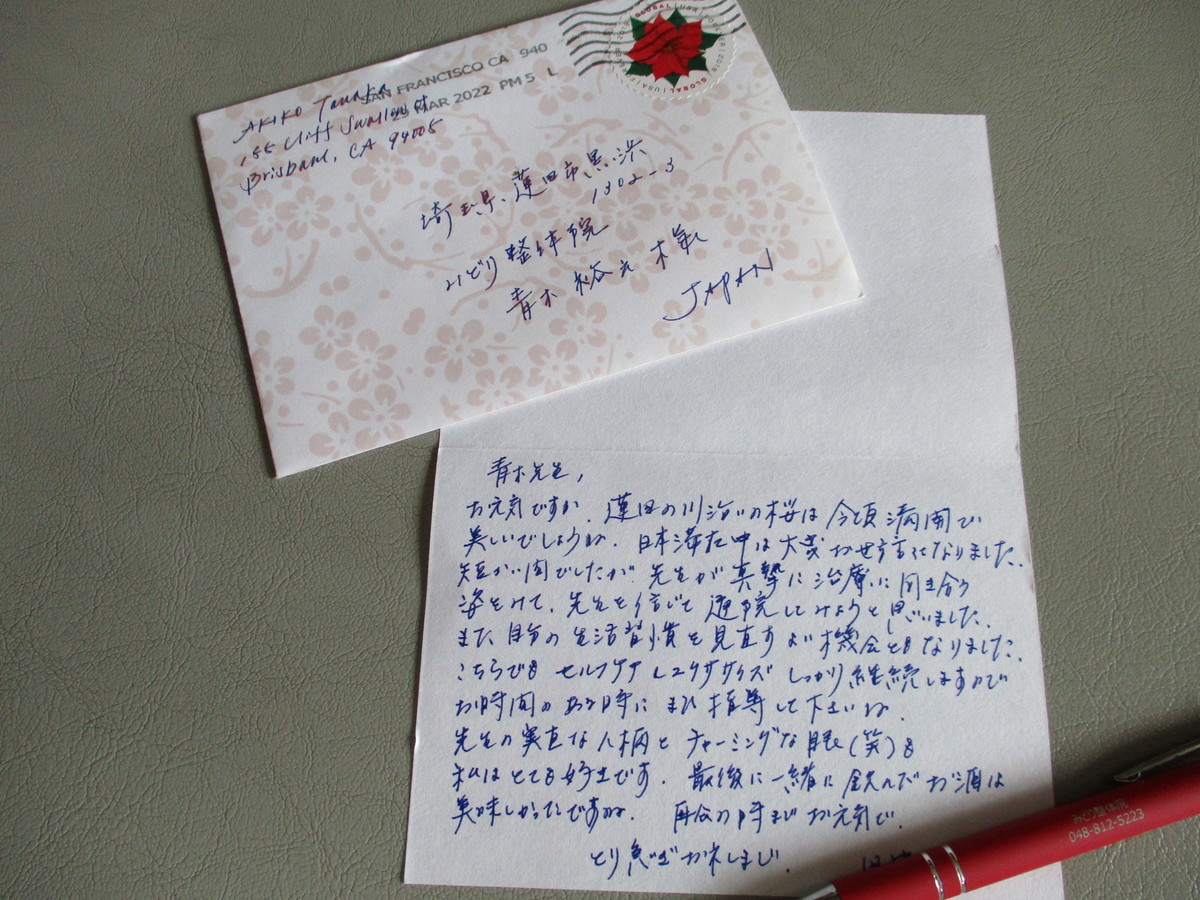 AKIKO Tanaka
155 Cliff Swallow Ct
Brisbane, CA 94005
SAN FRANCISCO CA 940
MAR 2022 PM 5 L
GLOBAL USA
埼玉県、蓮田市黒浜
1302-3
みどり整体院
青木 裕之 様
JAPAN
青木先生,
お元気ですか. 蓮田の川沿いの桜は今頃満開で
美しいでしょうね. 日本滞在中は大変お世話になりました.
短かい間でしたが 先生が真摯に治療に向き合う
姿をみて、先生を信じて通院してみようと思いました.
また、自分の生活習慣を見直すよい機会ともなりました.
こちらでも セルフケア しっかり継続しますので
お時間のある時に また指導して下さいね.
先生の実直な人柄と チャーミングな眼(笑)も
私はとても好きです. 最後に一緒に飲んだお酒は
美味しかったですね. 再会の時まで お元気で.
とり急ぎお礼まで.
みどり整体院
048-812-5223